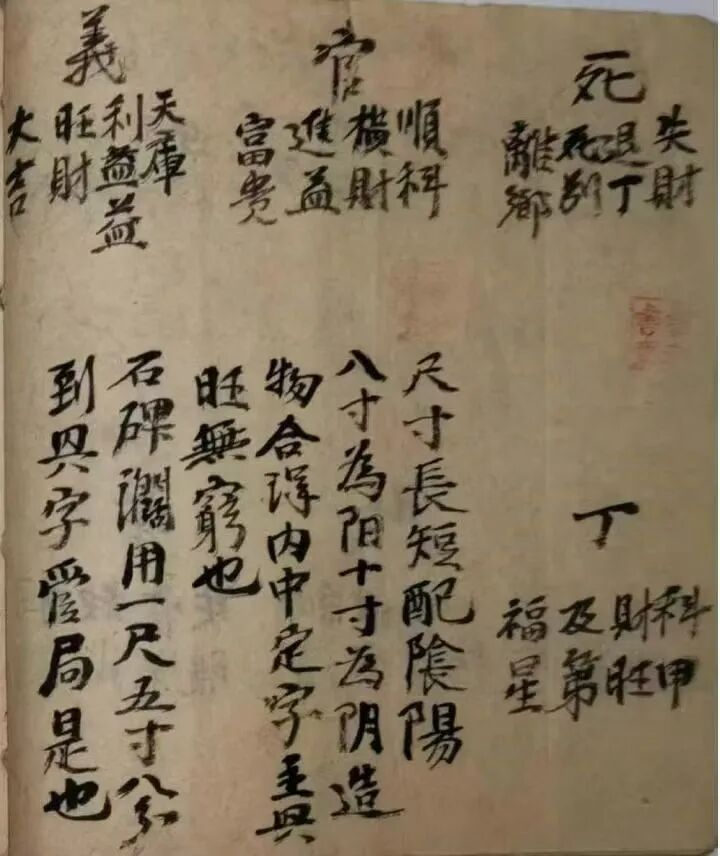 死
失財
退丁
死别
離鄉
丁
科甲
財旺
及第
福星
官
順科
橫財
進益
富贵
義
天庫
利益益
旺財
大吉
尺寸長短配陰陽
八寸為阳十寸為阴造
物合得内中定字主興
旺無窮也
石碑濶用一尺五寸八分
到興字管局是也